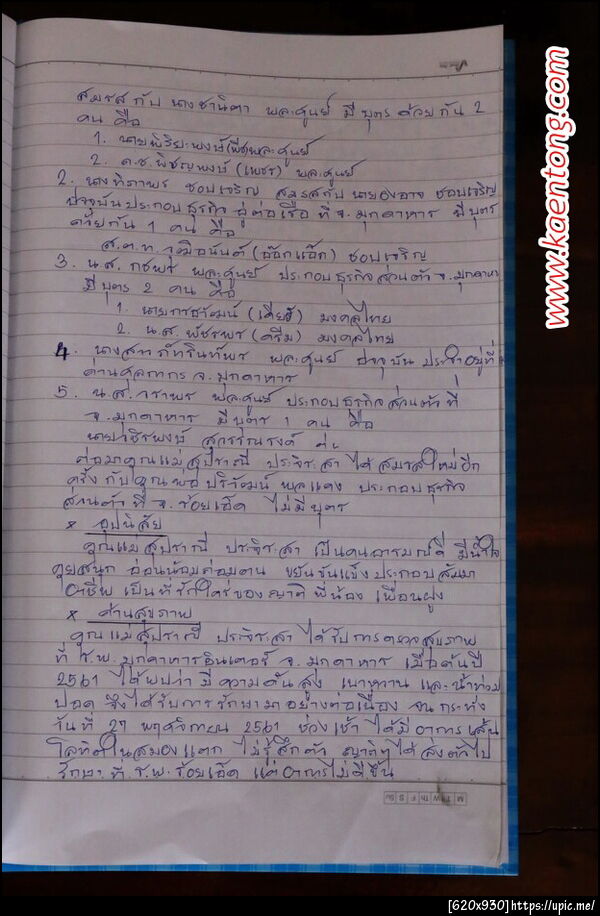 สมรสกับ นางชานิดา พละศูนย์ มีบุตรด้วยกัน 2
คน คือ
1. นายพิริยะพงษ์(พีช)พละศูนย์
2. ด.ช. พิชญพงษ์ (เพชร) พละศูนย์
2. นางทิภาพร ชอบเจริญ สมรสกับ นายองอาจ ชอบเจริญ
ปัจจุบันประกอบธุรกิจ อู่ต่อเรือ ที่ จ.มุกดาหาร มีบุตร
ด้วยกัน 1 คน คือ
ส.ต.ท. วุฒิอนันต์ (อ๊อกแอ๊ก) ชอบเจริญ
3. น.ส. กชพร พละศูนย์ ประกอบธุรกิจส่วนตัว จ.มุกดาหาร
มีบุตร 2 คน คือ
1. นาย (เคียร์) มงคลไทย
2. น.ส. พัชรพร (ครีม) มงคลไทย
4. นางสาว ภัทรินทิพร พละศูนย์ ปัจจุบัน ประจำอยู่ที่
ด่านศุลกากร จ.มุกดาหาร
5. น.ส. วราพร พละศูนย์ ประกอบธุรกิจส่วนตัว ที่
จ.มุกดาหาร มีบุตร 1 คน คือ
นายวชิรพงษ์ สุวรรณรงค์
ต่อมาคุณแม่สุปราณี ประจิระสา ได้สมรสใหม่อีก
ครั้ง กับคุณพ่อ ปริวัฒน์ พลแดง ประกอบธุรกิจ
ส่วนตัว ที่ จ.ร้อยเอ็ด ไม่มีบุตร
* อุปนิสัย
คุณแม่สุปราณี ประจิระสา เป็นคนอารมณ์ดี มีน้ำใจ
คุยสนุก อ่อนน้อมถ่อมตน ขยันขันแข็งประกอบสัมมา
อาชีพ เป็นที่รักใคร่ของญาติ พี่น้อง เพื่อนฝูง
* ด้านสุขภาพ
คุณแม่สุปราณี ประจิระสา ได้รับการตรวจสุขภาพ
ที่ ร.พ. มุกดาหารอินเตอร์ จ.มุกดาหาร เมื่อต้นปี
2561 ได้พบว่า มีความดันสูง เบาหวาน และน้ำท่วม
ปอด จึงได้รับการรักษามาอย่างต่อเนื่อง จนกระทั่ง
วันที่ 27 พฤศจิกายน 2561 ช่วงเช้า ได้มีอาการเส้น
โลหิตในสมองแตก ไม่รู้สึกตัว ญาติๆได้ส่งตัวไป
รักษา ที่ ร.พ. ร้อยเอ็ด แต่อาการไม่ดีขึ้น
M T W Th F S Su
www.kaentong.com
[620x930]https://upic.me/